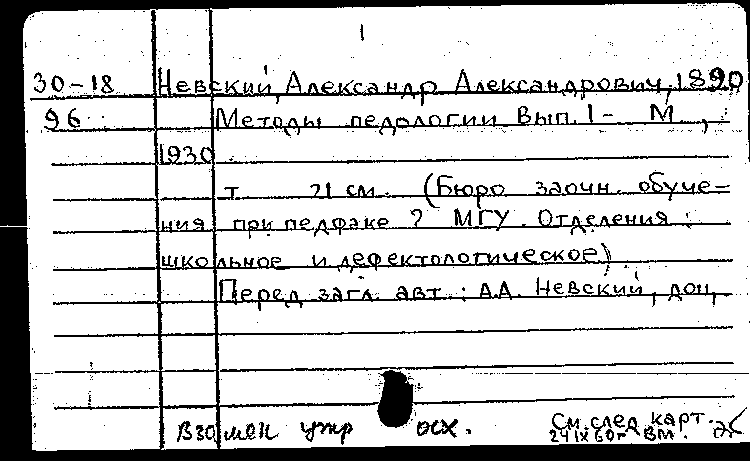 1
30-18 Невский, Александр Александрович, 1890
96 Методы педологии Вып. 1 - М.,
1930.
т 21 см. (Бюро заочн. обуче-
ния при педфаке 2 МГУ. Отделения:
школьное и дефектологическое)
Перед загл. авт.: А.А. Невский, доц.
Взамен утр осх.
См. след. карт.
24 IX 60 г. ВМ.